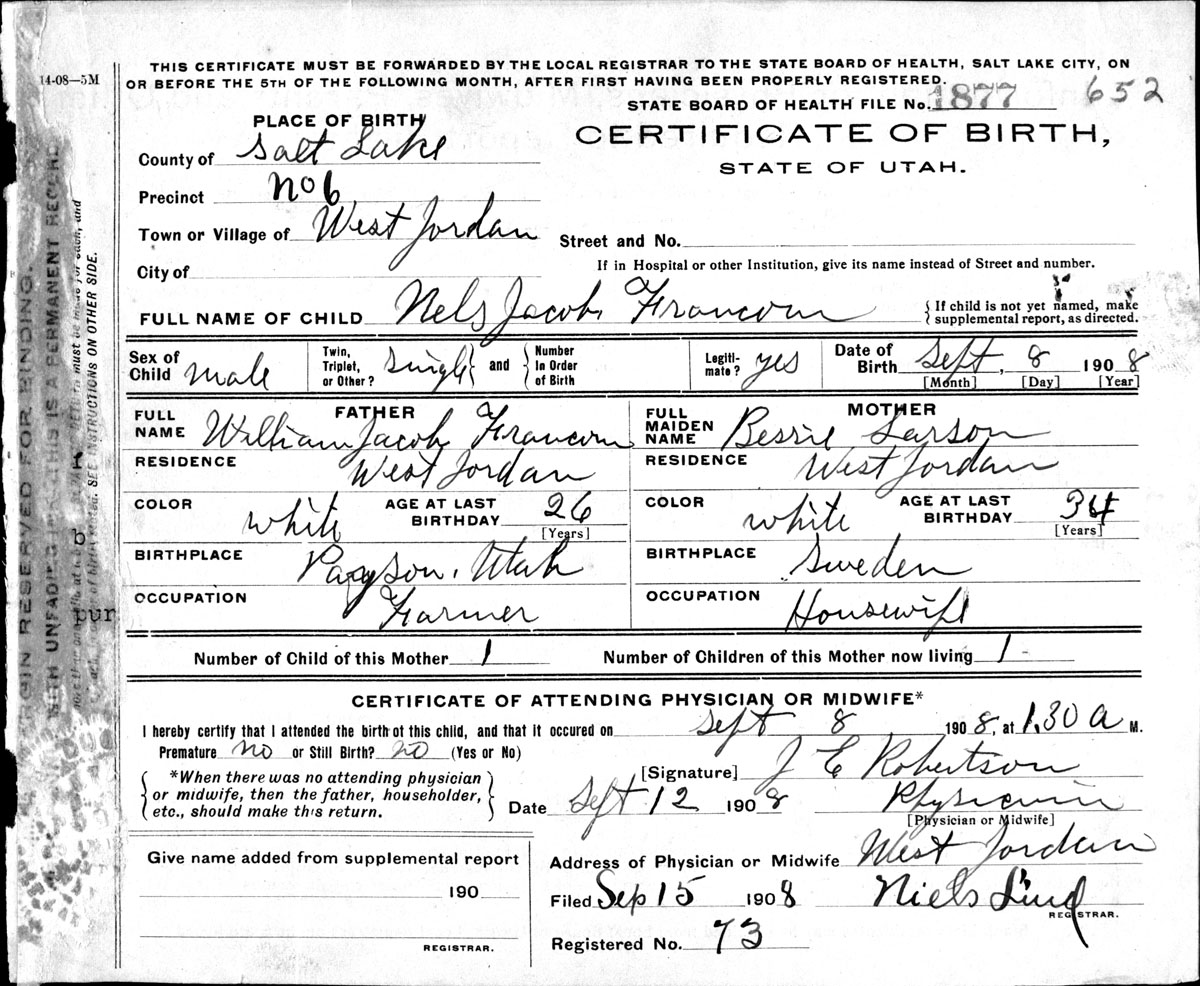 14-08—5M
THIS CERTIFICATE MUST BE FORWARDED BY THE LOCAL REGISTRAR TO THE STATE BOARD OF HEALTH, SALT LAKE CITY, ON
OR BEFORE THE 5TH OF THE FOLLOWING MONTH, AFTER FIRST HAVING BEEN PROPERLY REGISTERED.
STATE BOARD OF HEALTH FILE No. 1877 652
PLACE OF BIRTH
CERTIFICATE OF BIRTH,
STATE OF UTAH.
County of Salt Lake
Precinct No 6
Town or Village of West Jordan
Street and No.
City of
If in Hospital or other Institution, give its name instead of Street and number.
FULL NAME OF CHILD Nels Jacob Francom
{ If child is not yet named, make
supplemental report, as directed.
Sex of Child male
Twin, Triplet, or Other? Single and Number In Order of Birth
Legiti-mate? yes
Date of Birth Sept, 8 1908
[Month] [Day] [Year]
FATHER
FULL NAME William Jacob Francom
MOTHER
FULL MAIDEN NAME Bessie Larson
RESIDENCE West Jordan
RESIDENCE West Jordan
COLOR white AGE AT LAST BIRTHDAY 26 [Years]
COLOR white AGE AT LAST BIRTHDAY 34 [Years]
BIRTHPLACE Payson, Utah
BIRTHPLACE Sweden
OCCUPATION Farmer
OCCUPATION Housewife
Number of Child of this Mother 1
Number of Children of this Mother now living 1
CERTIFICATE OF ATTENDING PHYSICIAN OR MIDWIFE*
I hereby certify that I attended the birth of this child, and that it occured on Sept 8 1908, at 1.30 A M.
Premature no or Still Birth? no (Yes or No)
*When there was no attending physician
or midwife, then the father, householder,
etc., should make this return.
[Signature] J E Robertson
Date Sept 12 1908 Physician
[Physician or Midwife]
Give name added from supplemental report
190
REGISTRAR.
Address of Physician or Midwife West Jordan
Filed Sep 15 1908 Niels Lind
REGISTRAR.
Registered No. 73
SEE INSTRUCTIONS ON OTHER SIDE.
RESERVED FOR BINDING.
THIS IS A PERMANENT
b
pur